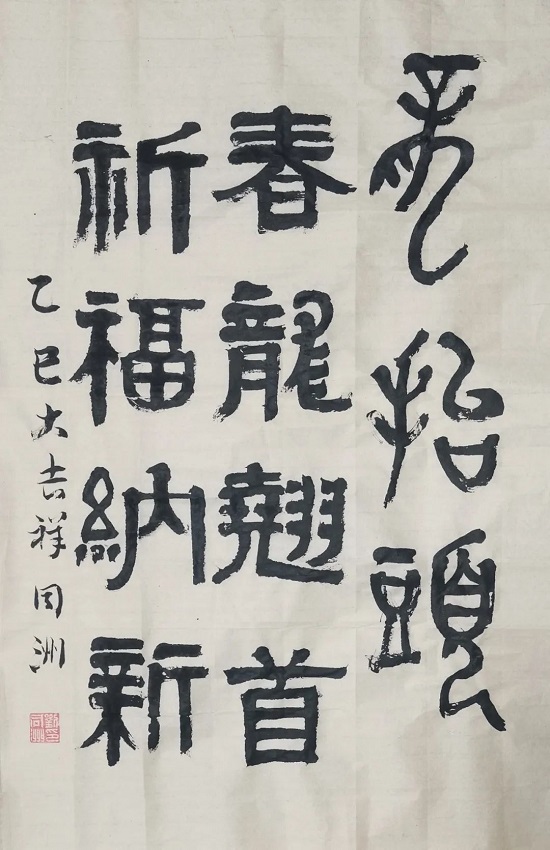 龙抬頭
春龍翹首
祈福納新
乙巳大吉祥同洲